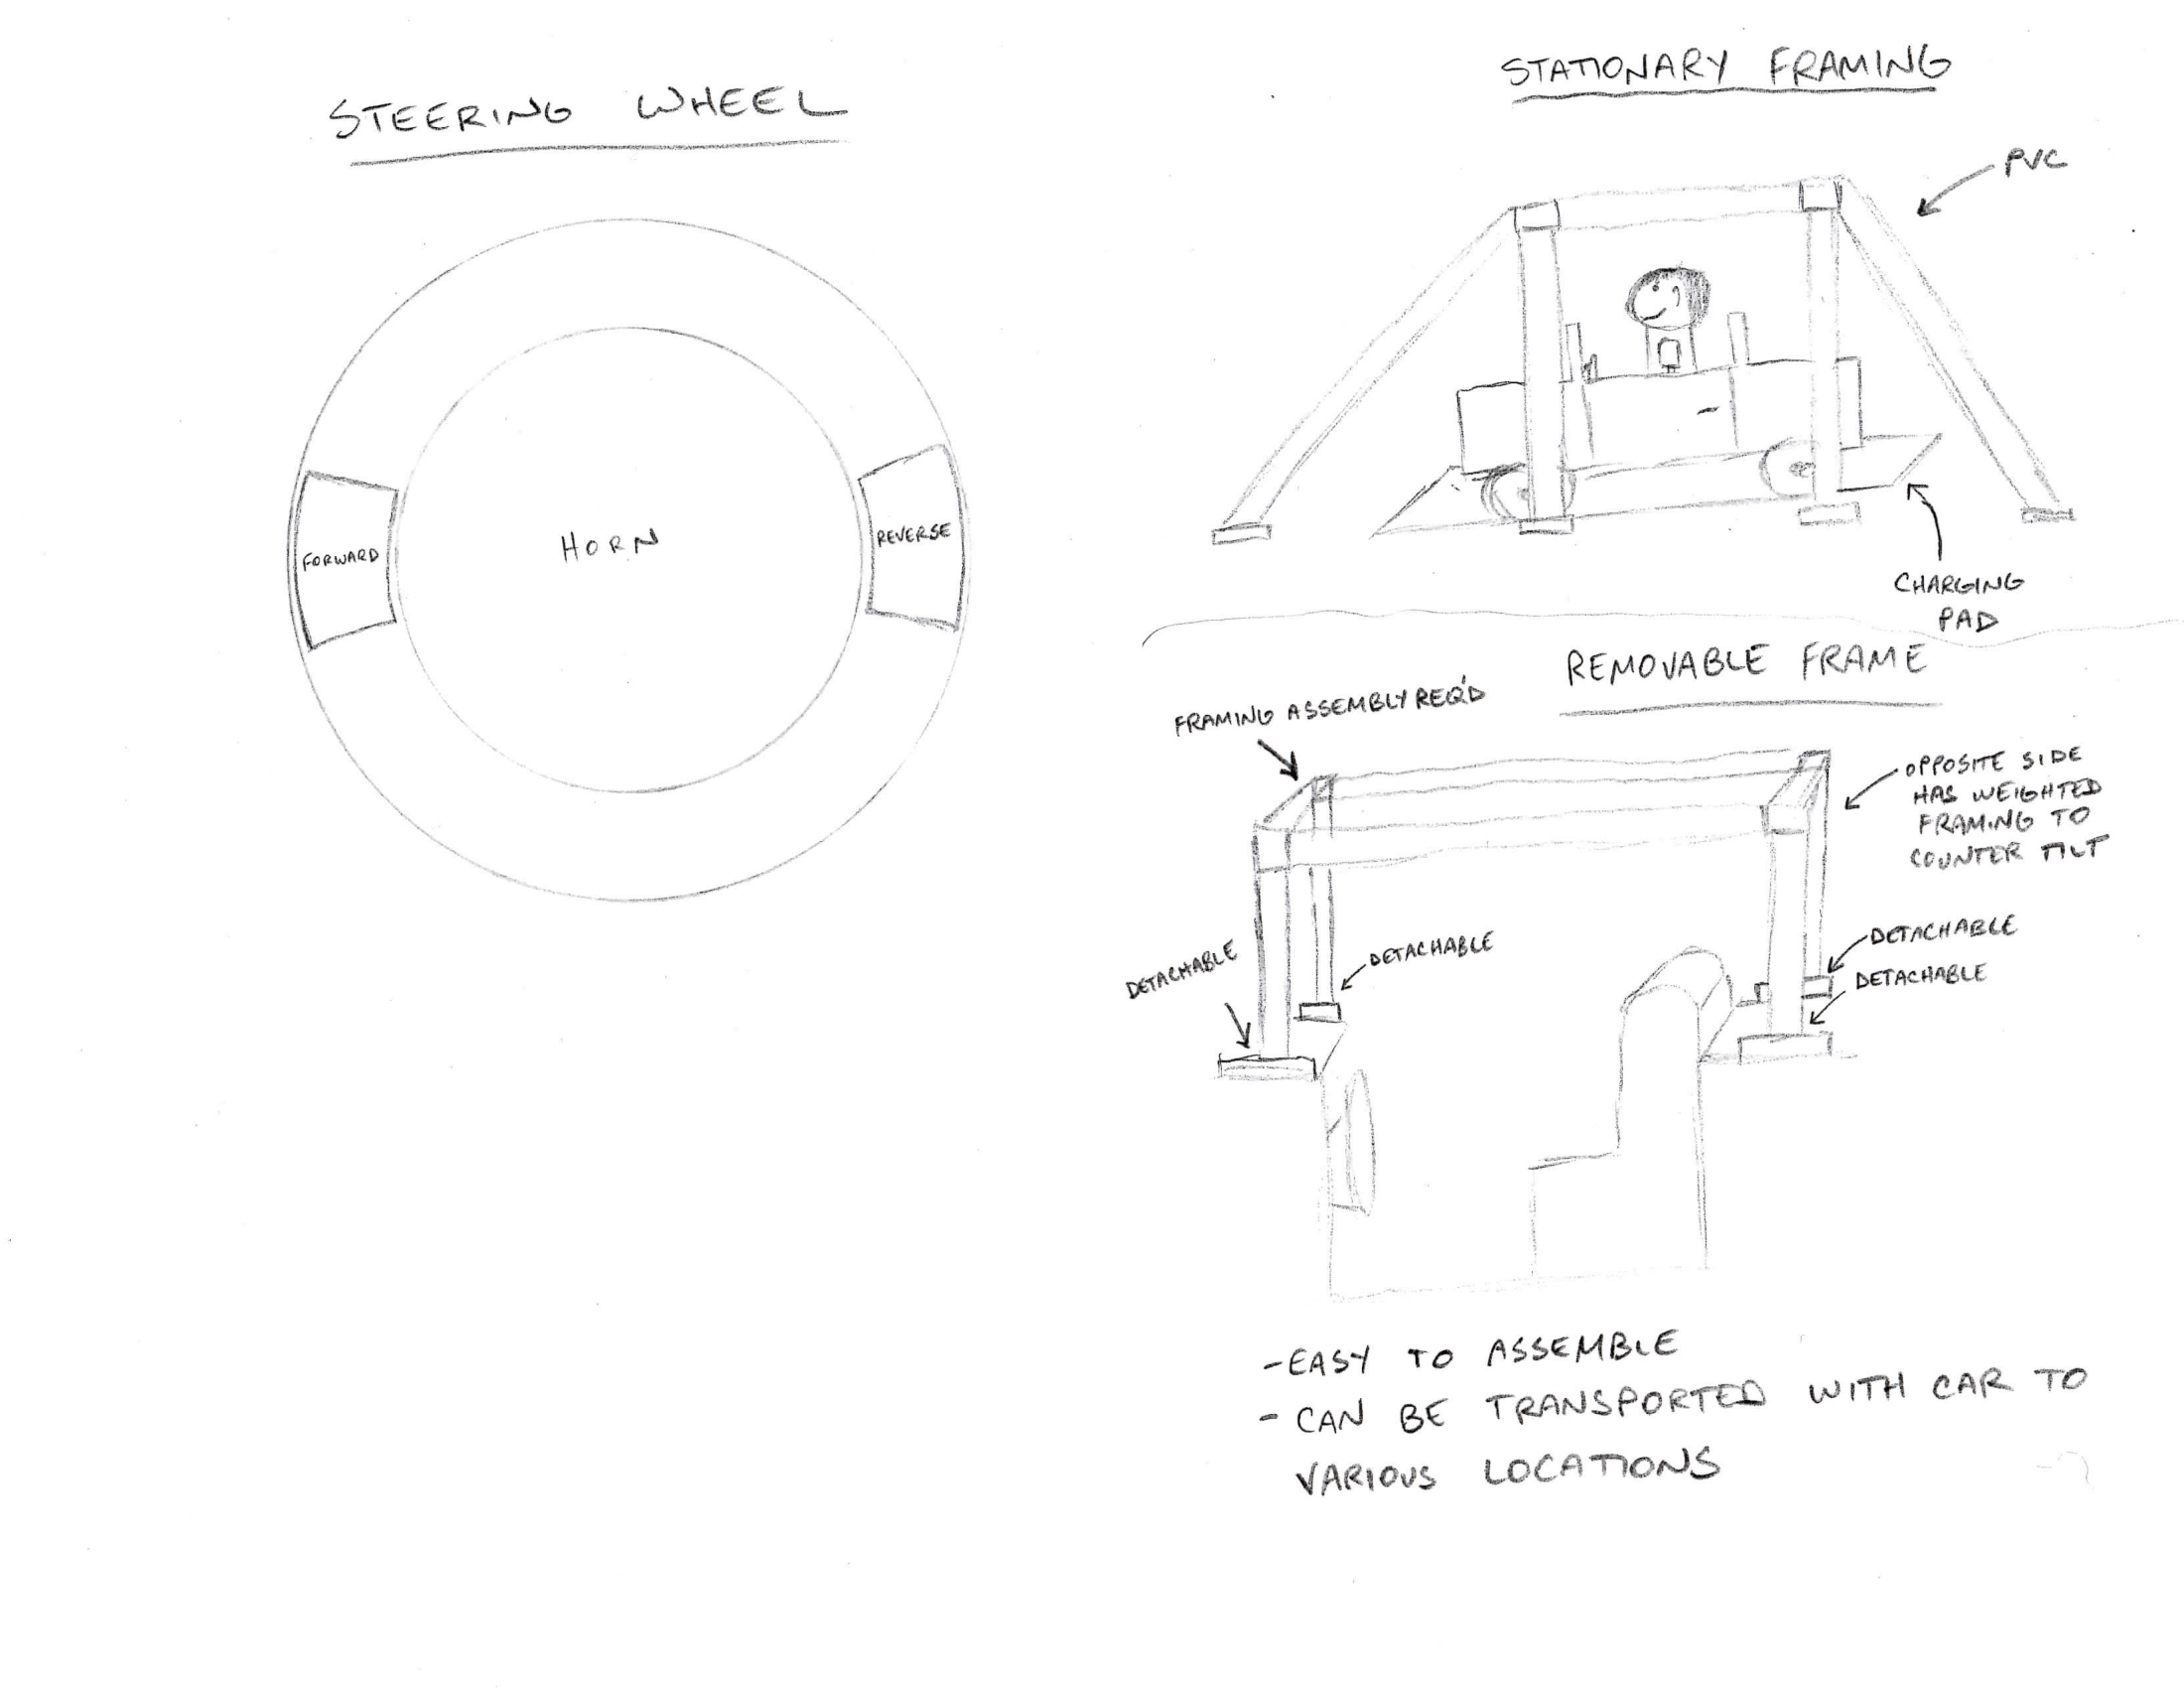 STEERING WHEEL
FORWARD
HORN
REVERSE
STATIONARY FRAMING
PVC
CHARGING
PAD
REMOVABLE FRAME
FRAMING ASSEMBLY REQ'D
OPPOSITE SIDE
HAS WEIGHTED
FRAMING TO
COUNTER TILT
DETACHABLE
DETACHABLE
DETACHABLE
DETACHABLE
-EASY TO ASSEMBLE
- CAN BE TRANSPORTED WITH CAR TO
VARIOUS LOCATIONS